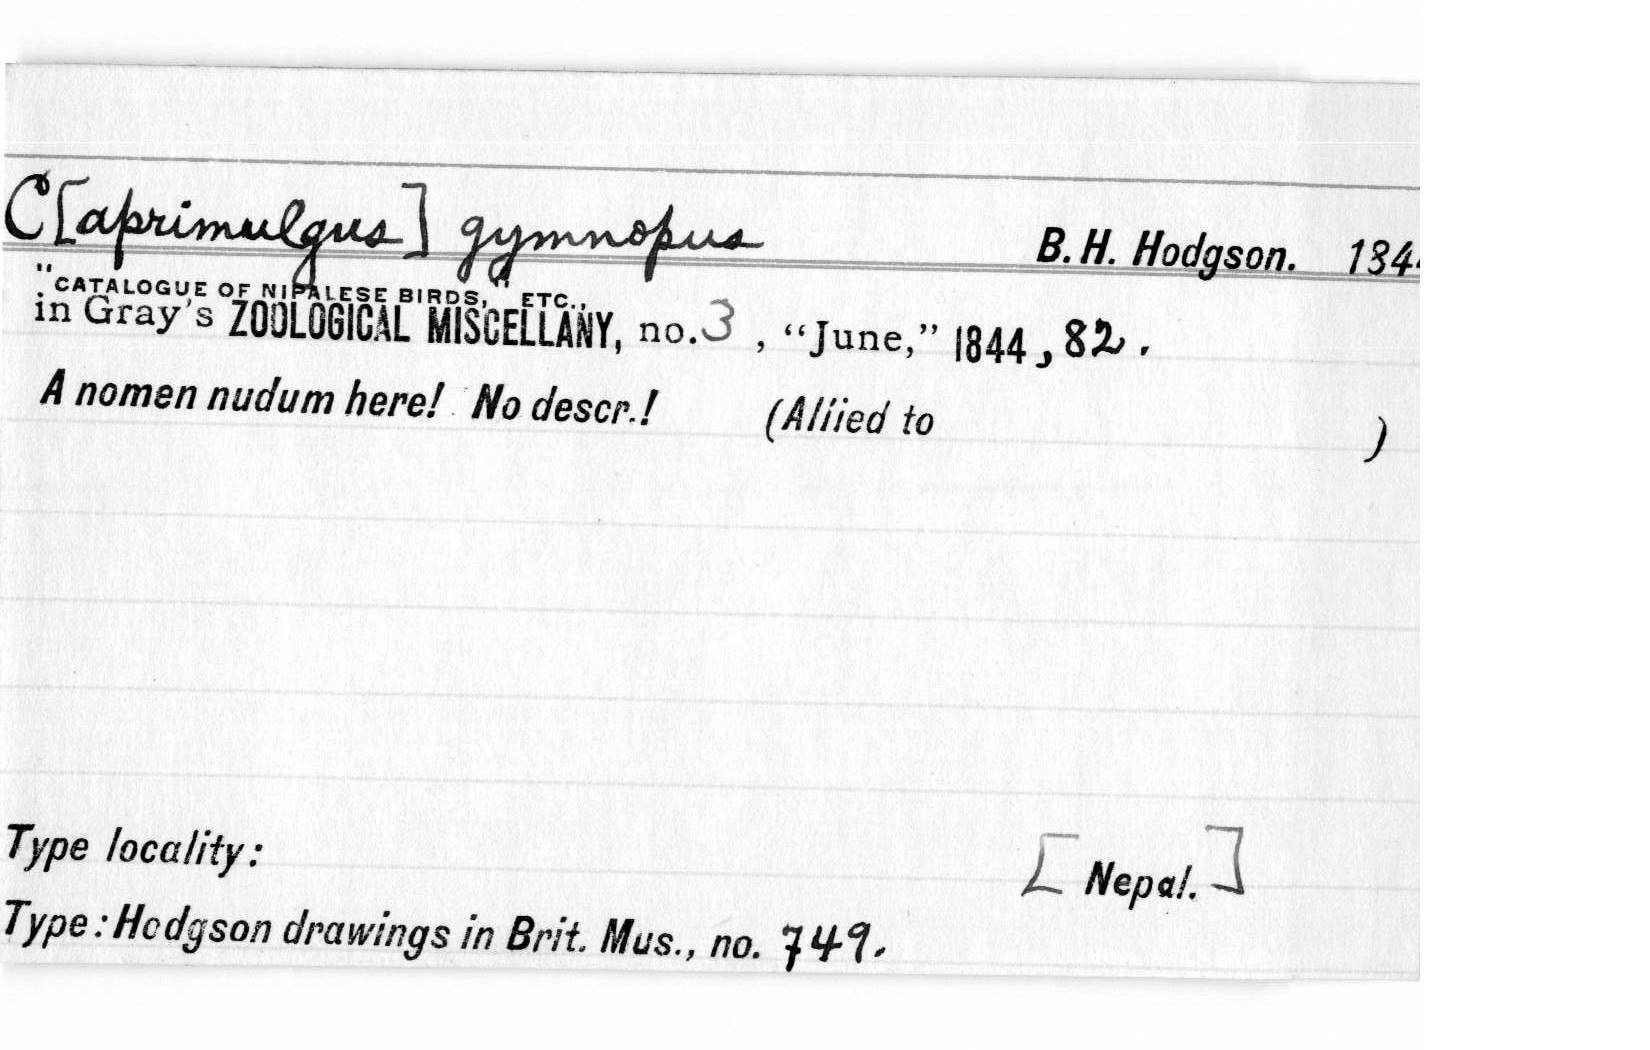 C[aprimulgus] gymnopus B. H. Hodgson. 184
"CATALOGUE OF NIPALESE BIRDS," ETC.,
in Gray's ZOOLOGICAL MISCELLANY, no. 3, "June," 1844, 82.
A nomen nudum here! No descr.! (Allied to )
Type locality: [Nepal.]
Type: Hodgson drawings in Brit. Mus., no. 749.